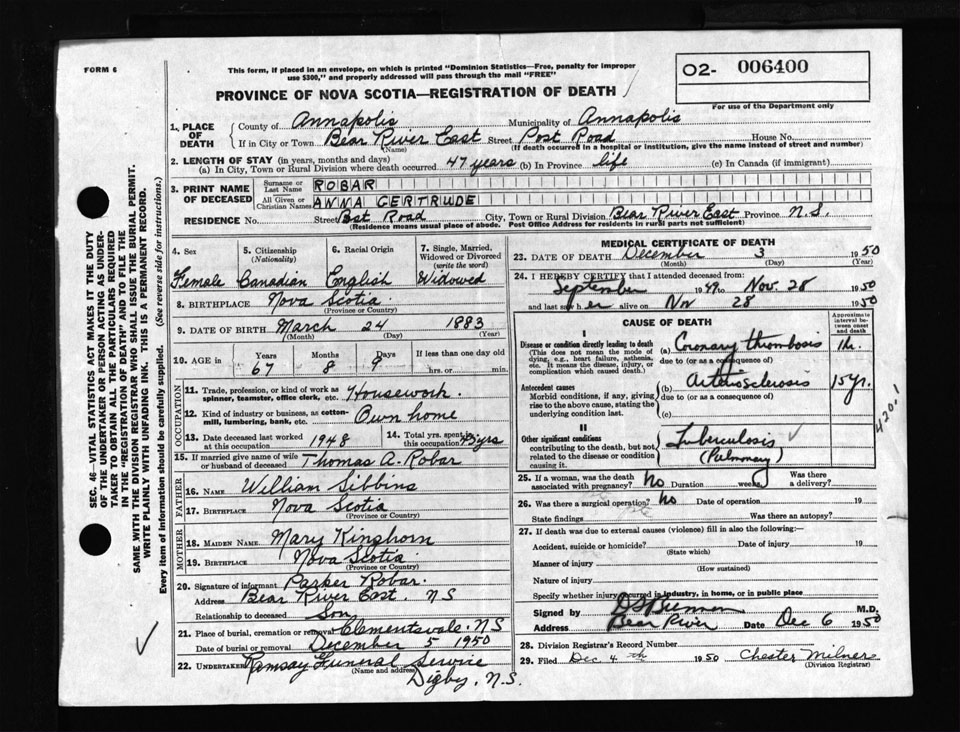 FORM 6
This form, if placed in an envelope, on which is printed "Dominion Statistics—Free, penalty for improper
use $300," and properly addressed will pass through the mail "FREE"
O2- 006400
For use of the Department only
PROVINCE OF NOVA SCOTIA—REGISTRATION OF DEATH
1. PLACE OF DEATH
County of Annapolis Municipality of Annapolis
If in City or Town Bear River East Street Post Road House No.
(Name) (If death occurred in a hospital or institution, give the name instead of street and number)
2. LENGTH OF STAY (in years, months and days)
(a) In City, Town or Rural Division where death occurred 47 years (b) In Province life (c) In Canada (if immigrant)
3. PRINT NAME OF DECEASED
Surname or Last Name ROBAR
All Given or Christian Names ANNA GERTRUDE
RESIDENCE No. Street Post Road City, Town or Rural Division Bear River East Province N.S.
(Residence means usual place of abode. Post Office Address for residents in rural parts not sufficient)
4. Sex 5. Citizenship (Nationality) 6. Racial Origin 7. Single, Married, Widowed or Divorced (write the word)
Female Canadian English Widowed
8. BIRTHPLACE Nova Scotia
(Province or Country)
9. DATE OF BIRTH March 24 1883
(Month) (Day) (Year)
10. AGE in Years Months Days If less than one day old
67 8 9 hrs. or min.
OCCUPATION
11. Trade, profession, or kind of work as spinner, teamster, office clerk, etc. Housework.
12. Kind of industry or business, as cotton-mill, lumbering, bank, etc. Own home
13. Date deceased last worked at this occupation 1948
14. Total yrs. spent in this occupation 45 yrs
15. If married give name of wife or husband of deceased Thomas A. Robar
FATHER
16. NAME William Sibbins
17. BIRTHPLACE Nova Scotia
(Province or Country)
MOTHER
18. MAIDEN NAME Mary Kinghorn
19. BIRTHPLACE Nova Scotia
(Province or Country)
20. Signature of informant Parker Robar.
Address Bear River East. NS
Relationship to deceased Son
21. Place of burial, cremation or removal Clementsvale. NS
Date of burial or removal December 5 1950
22. UNDERTAKER Ramsay Funeral Service
(Name and address)
Digby, N.S.
MEDICAL CERTIFICATE OF DEATH
23. DATE OF DEATH December 3 1950
(Month) (Day) (Year)
24. I HEREBY CERTIFY that I attended deceased from:
September 1949 to Nov. 28 1950
and last saw her alive on Nov 28 1950
CAUSE OF DEATH
Approximate interval between onset and death
I
Disease or condition directly leading to death
(This does not mean the mode of dying, e.g., heart failure, asthenia, etc. It means the disease, injury, or complication which caused death.)
(a) Coronary thrombosis 1 hr.
due to (or as a consequence of)
Antecedent causes
Morbid conditions, if any, giving rise to the above cause, stating the underlying condition last.
(b) Arteriosclerosis 15 yr.
due to (or as a consequence of)
(c)
420.1
II
Other significant conditions
contributing to the death, but not related to the disease or condition causing it.
Tuberculosis
(Pulmonary)
25. If a woman, was the death associated with pregnancy? No Duration weeks Was there a delivery?
26. Was there a surgical operation? No Date of operation 19
State findings Was there an autopsy?
27. If death was due to external causes (violence) fill in also the following:—
Accident, suicide or homicide? Date of injury 19
(State which)
Manner of injury
(How sustained)
Nature of injury
Specify whether injury occurred in industry, in home, or in public place
Signed by M.D,
Address Bear River Date Dec 6 1950
28. Division Registrar's Record Number
29. Filed Dec 4th 1950 Chester Milner
(Division Registrar)
SEC. 46—VITAL STATISTICS ACT MAKES IT THE DUTY
OF THE UNDERTAKER OR PERSON ACTING AS UNDER-
TAKER TO OBTAIN ALL THE PARTICULARS REQUIRED
IN THE "REGISTRATION OF DEATH" AND TO FILE THE
SAME WITH THE DIVISION REGISTRAR WHO SHALL ISSUE THE BURIAL PERMIT.
WRITE PLAINLY WITH UNFADING INK. THIS IS A PERMANENT RECORD.
Every item of information should be carefully supplied. (See reverse side for instructions.)